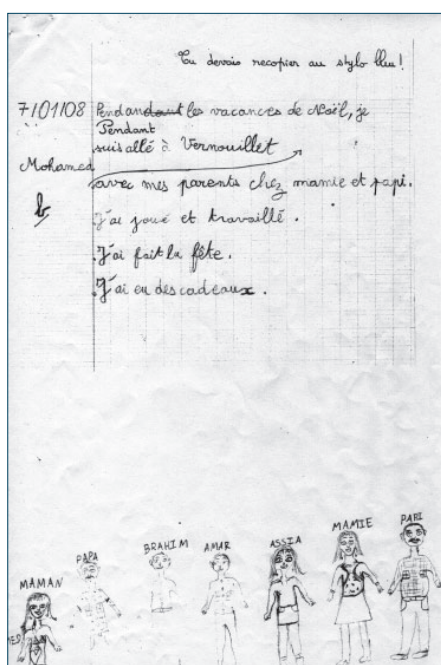 Tu devais recopier au stylo bleu !
7/01/08 Pendandant les vacances de Noël, je
Pendant
suis allé à Vernouillet
Mohamed
avec mes parents chez mamie et papi.
b
J'ai joué et travaillé.
J'ai fait la fête.
J'ai eu des cadeaux.
MAMAN
PAPA
BRAHIM
AMAR
ASSIA
MAMIE
PAPI